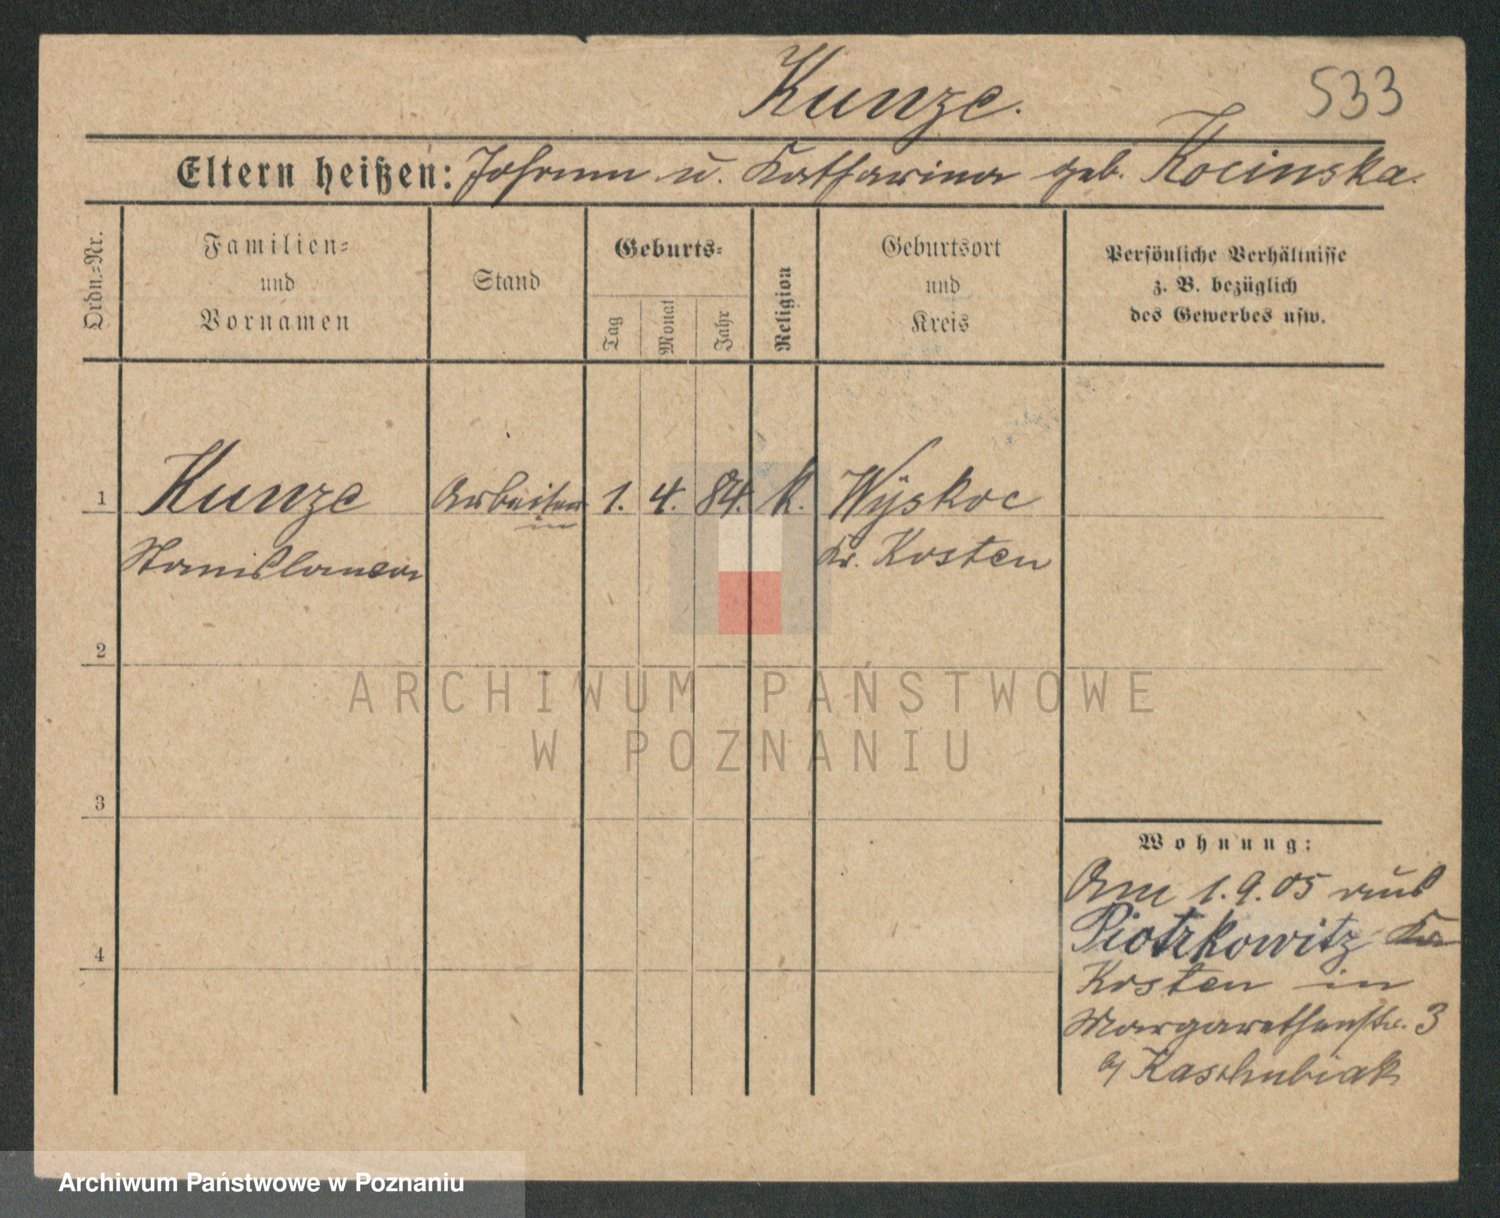 Kunze.
533
Eltern heißen: Johann u. Katharina geb. Kocinska.
Ordn.-Nr.
Familien-
und
Vornamen
Stand
Geburts-
Tag
Monat
Jahr
Religion
Geburtsort
und
Kreis
Persönliche Verhältnisse
z. B. bezüglich
des Gewerbes usw.
1 Kunze Arbeiter 1. 4. 84. k. Wÿskoc
in
Stanislawa Kr. Kosten
2
ARCHIWUM PAŃSTWOWE
W POZNANIU
3
Wohnung:
Am 1.9.05 aus
Piotrkowitz Kr
4
Kosten in
Margarethenstr. 3
b/ Kaschubiak
Archiwum Państwowe w Poznaniu